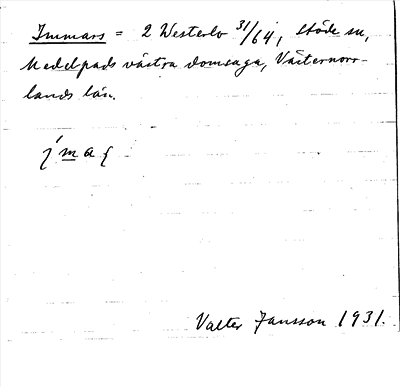 Immars = 2 Westerlo 31/64, Stöde sn,
Medelpads västra domsaga, Västernorr-
lands län.
Valter Jansson 1931.